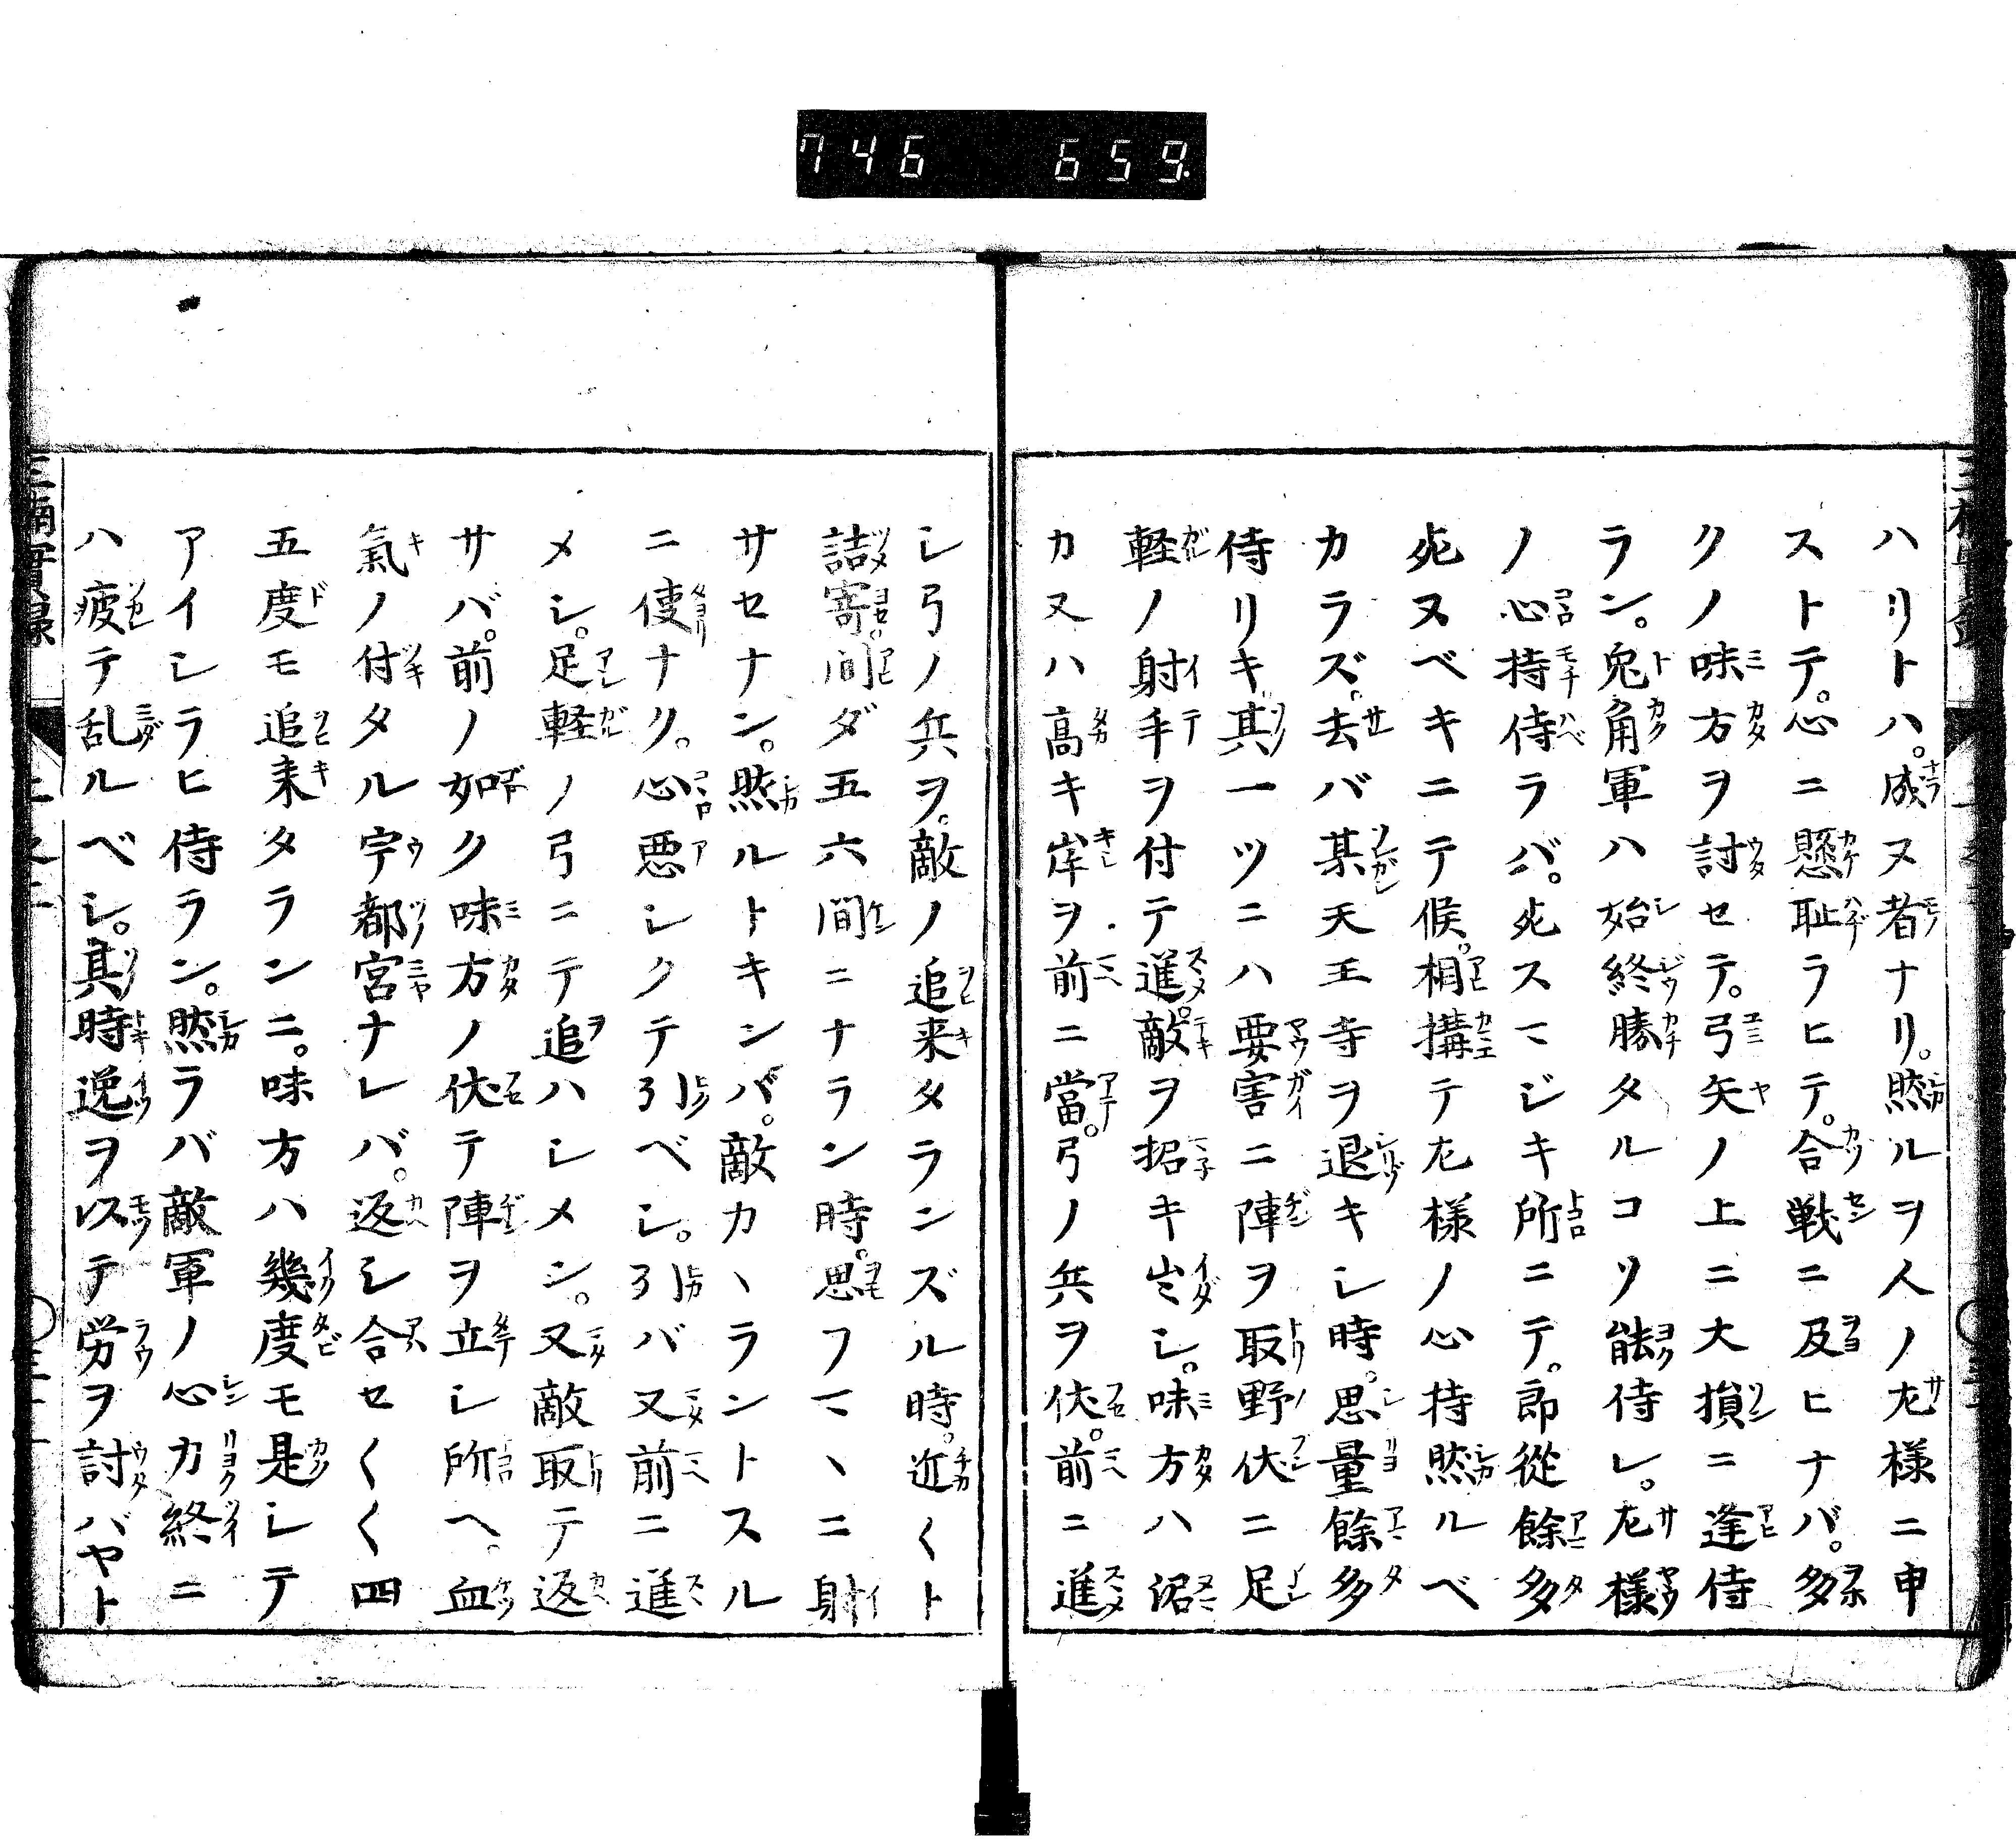 746 659.
ハリトハ。成ヌ者ナリ。然ルヲ人ノ左様ニ申
ストテ。心ニ懸恥ラヒテ。合戦ニ及ヒナバ。多
クノ味方ヲ討セテ。弓矢ノ上ニ大損ニ逢侍
ラン。兎角軍ハ始終勝タルコソ能侍レ。左様
ノ心持侍ラバ。死スマジキ所ニテ。郎從餘多
死ヌベキニテ候。相搆テ左様ノ心持然ルベ
カラズ。去バ某天王寺ヲ退キシ時。思量餘多
侍リキ其一ツニハ要害ニ陣ヲ取野伏ニ足
軽ノ射手ヲ付テ進。敵ヲ招キ出シ。味方ハ沼
カ又ハ高キ岸ヲ前ニ當。弓ノ兵ヲ伏。前ニ進
シ弓ノ兵ヲ。敵ノ追来タランズル時。近〱ト
詰寄。間ダ五六間ニナラン時。思フマヽニ射
サセナン。然ルトキンバ。敵カヽラントスル
ニ便ナク。心悪シクテ引ベシ。引バ又前ニ進
メシ。足軽ノ弓ニテ追ハシメン。又敵取テ返
サバ。前ノ如ク味方ノ伏テ陣ヲ立シ所ヘ。血
氣ノ付タル宇都宮ナレバ。返シ合セ〱〱四
五度モ追来タランニ。味方ハ幾度モ是シテ
アイシラヒ侍ラン。然ラバ敵軍ノ心力終ニ
ハ疲テ乱ルベシ。其時逸ヲ以テ労ヲ討バヤト